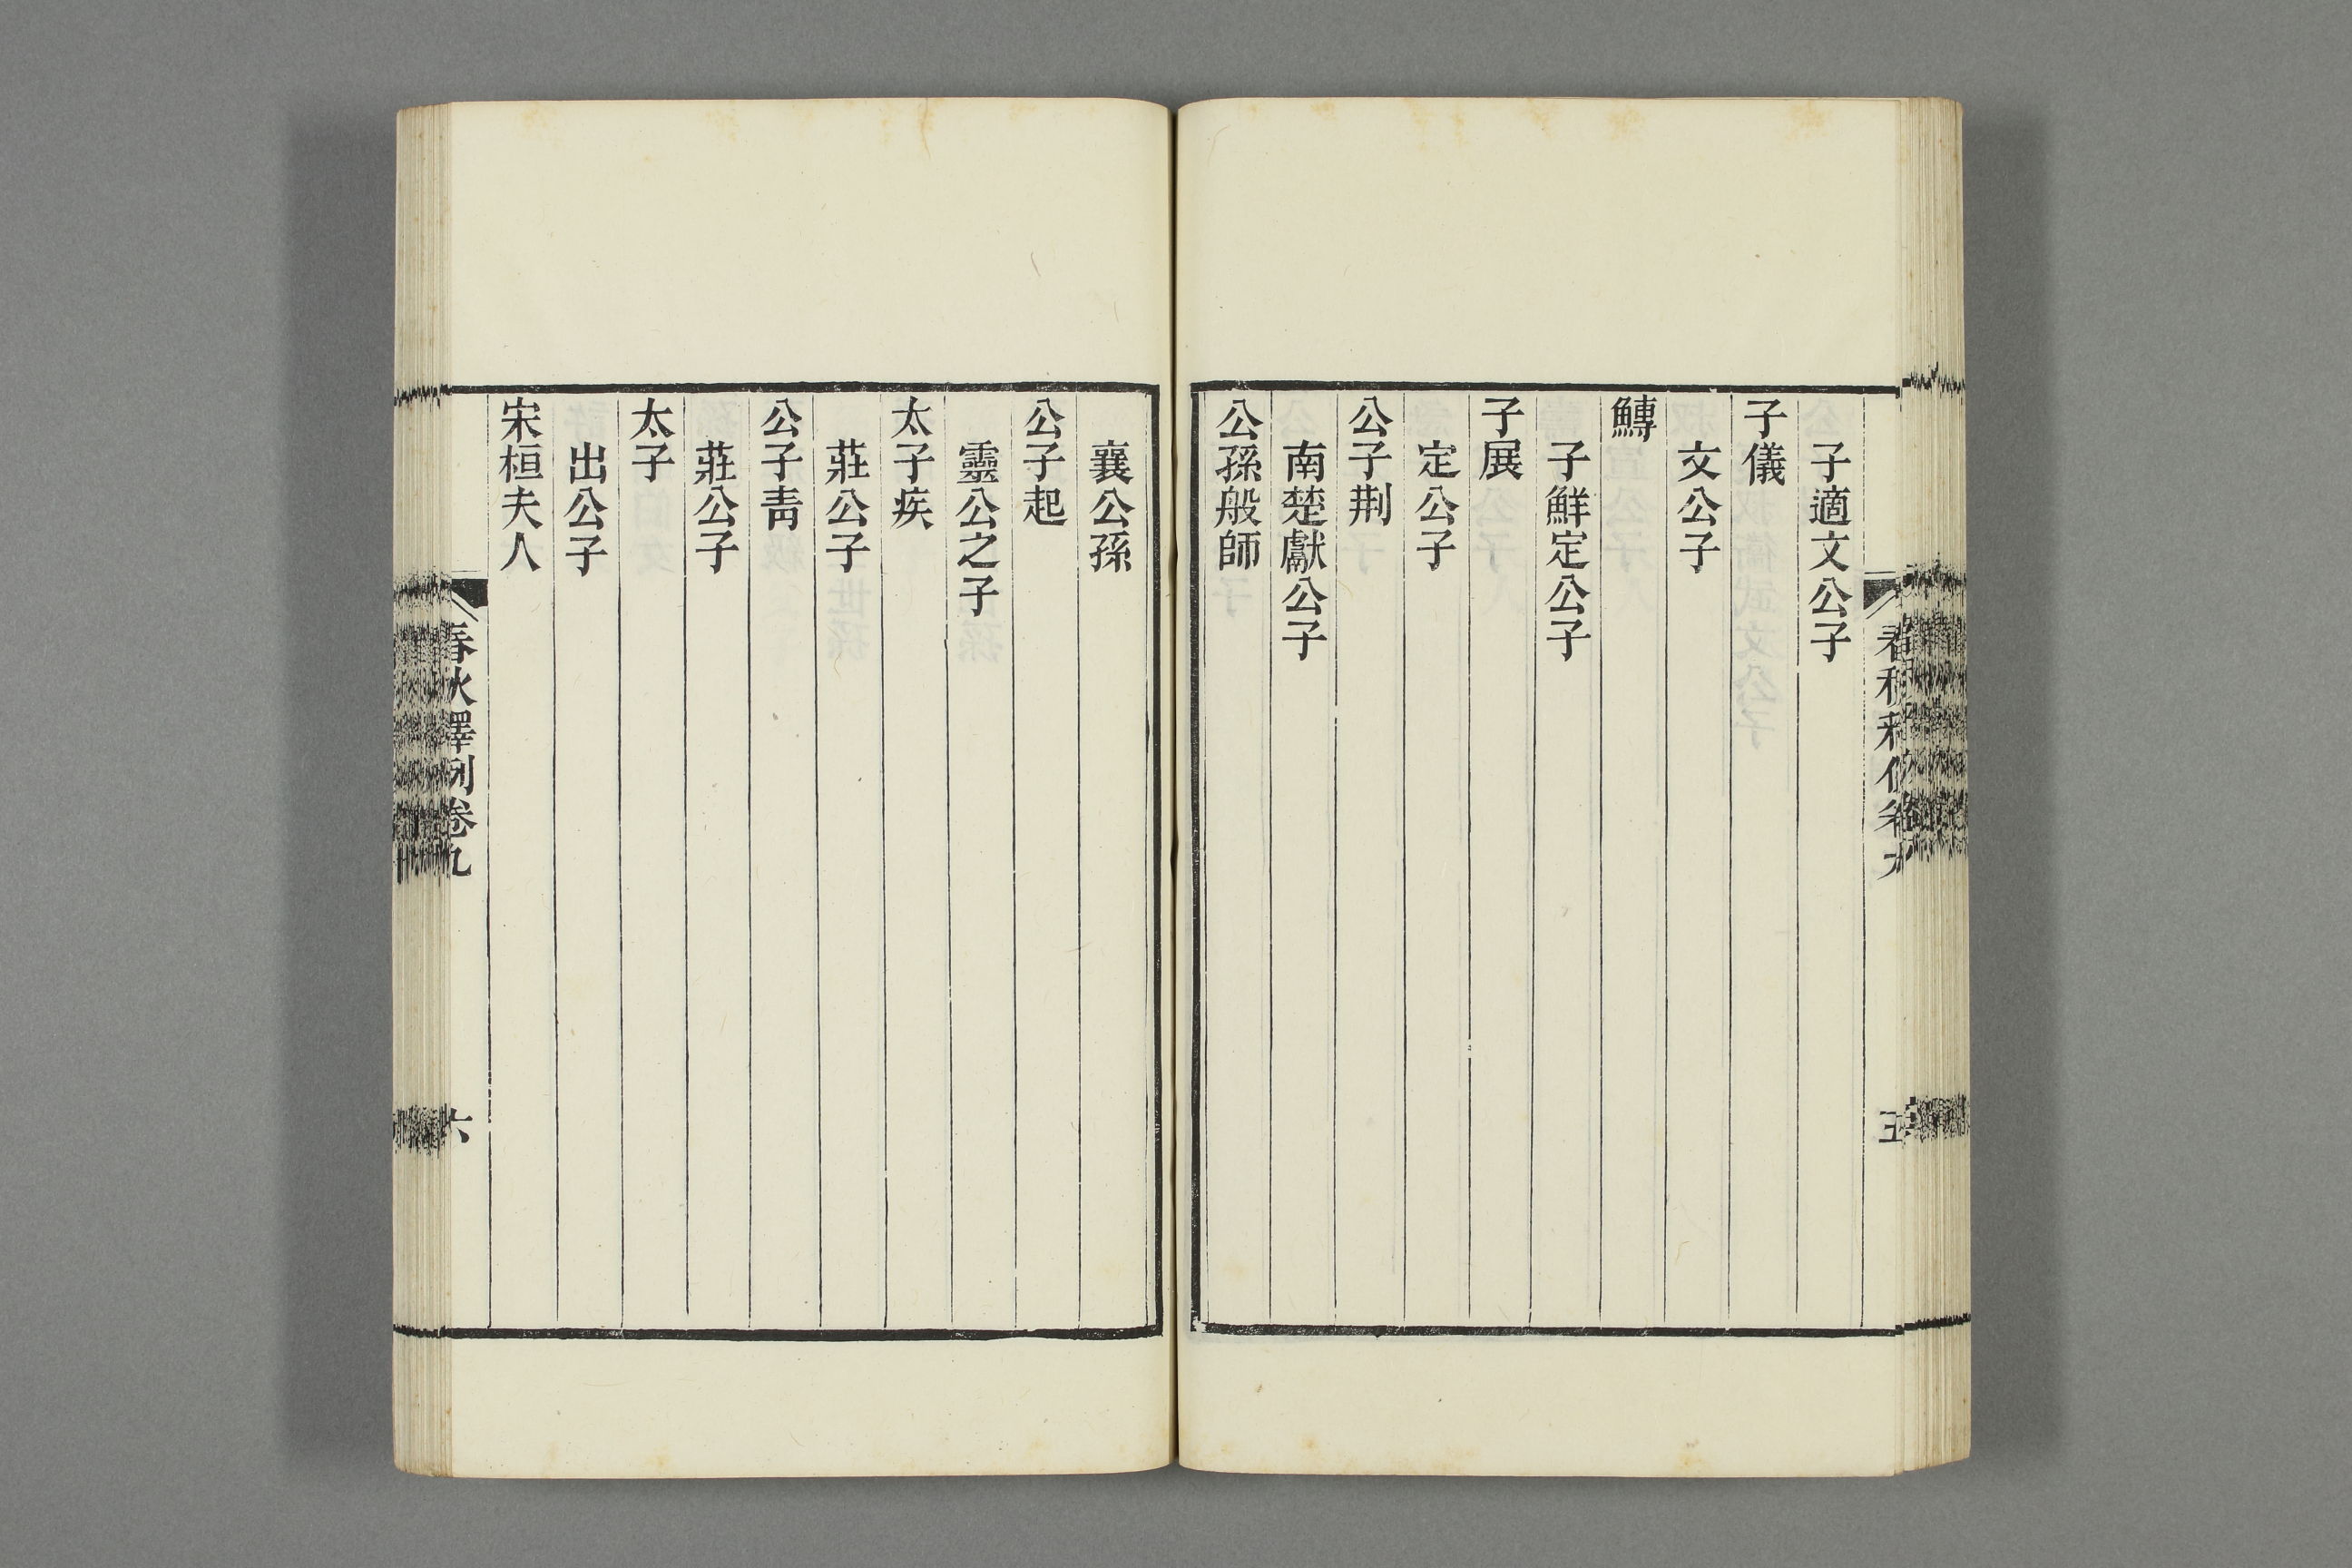 子適文公子
子儀
文公子
鱄
子鮮定公子
子展
定公子
公子荆
南楚獻公子
公孫般師
襄公孫
公子起
靈公之子
太子疾
莊公子
公子靑
莊公子
太子
出公子
宋桓夫人
春秋釋例卷九
六